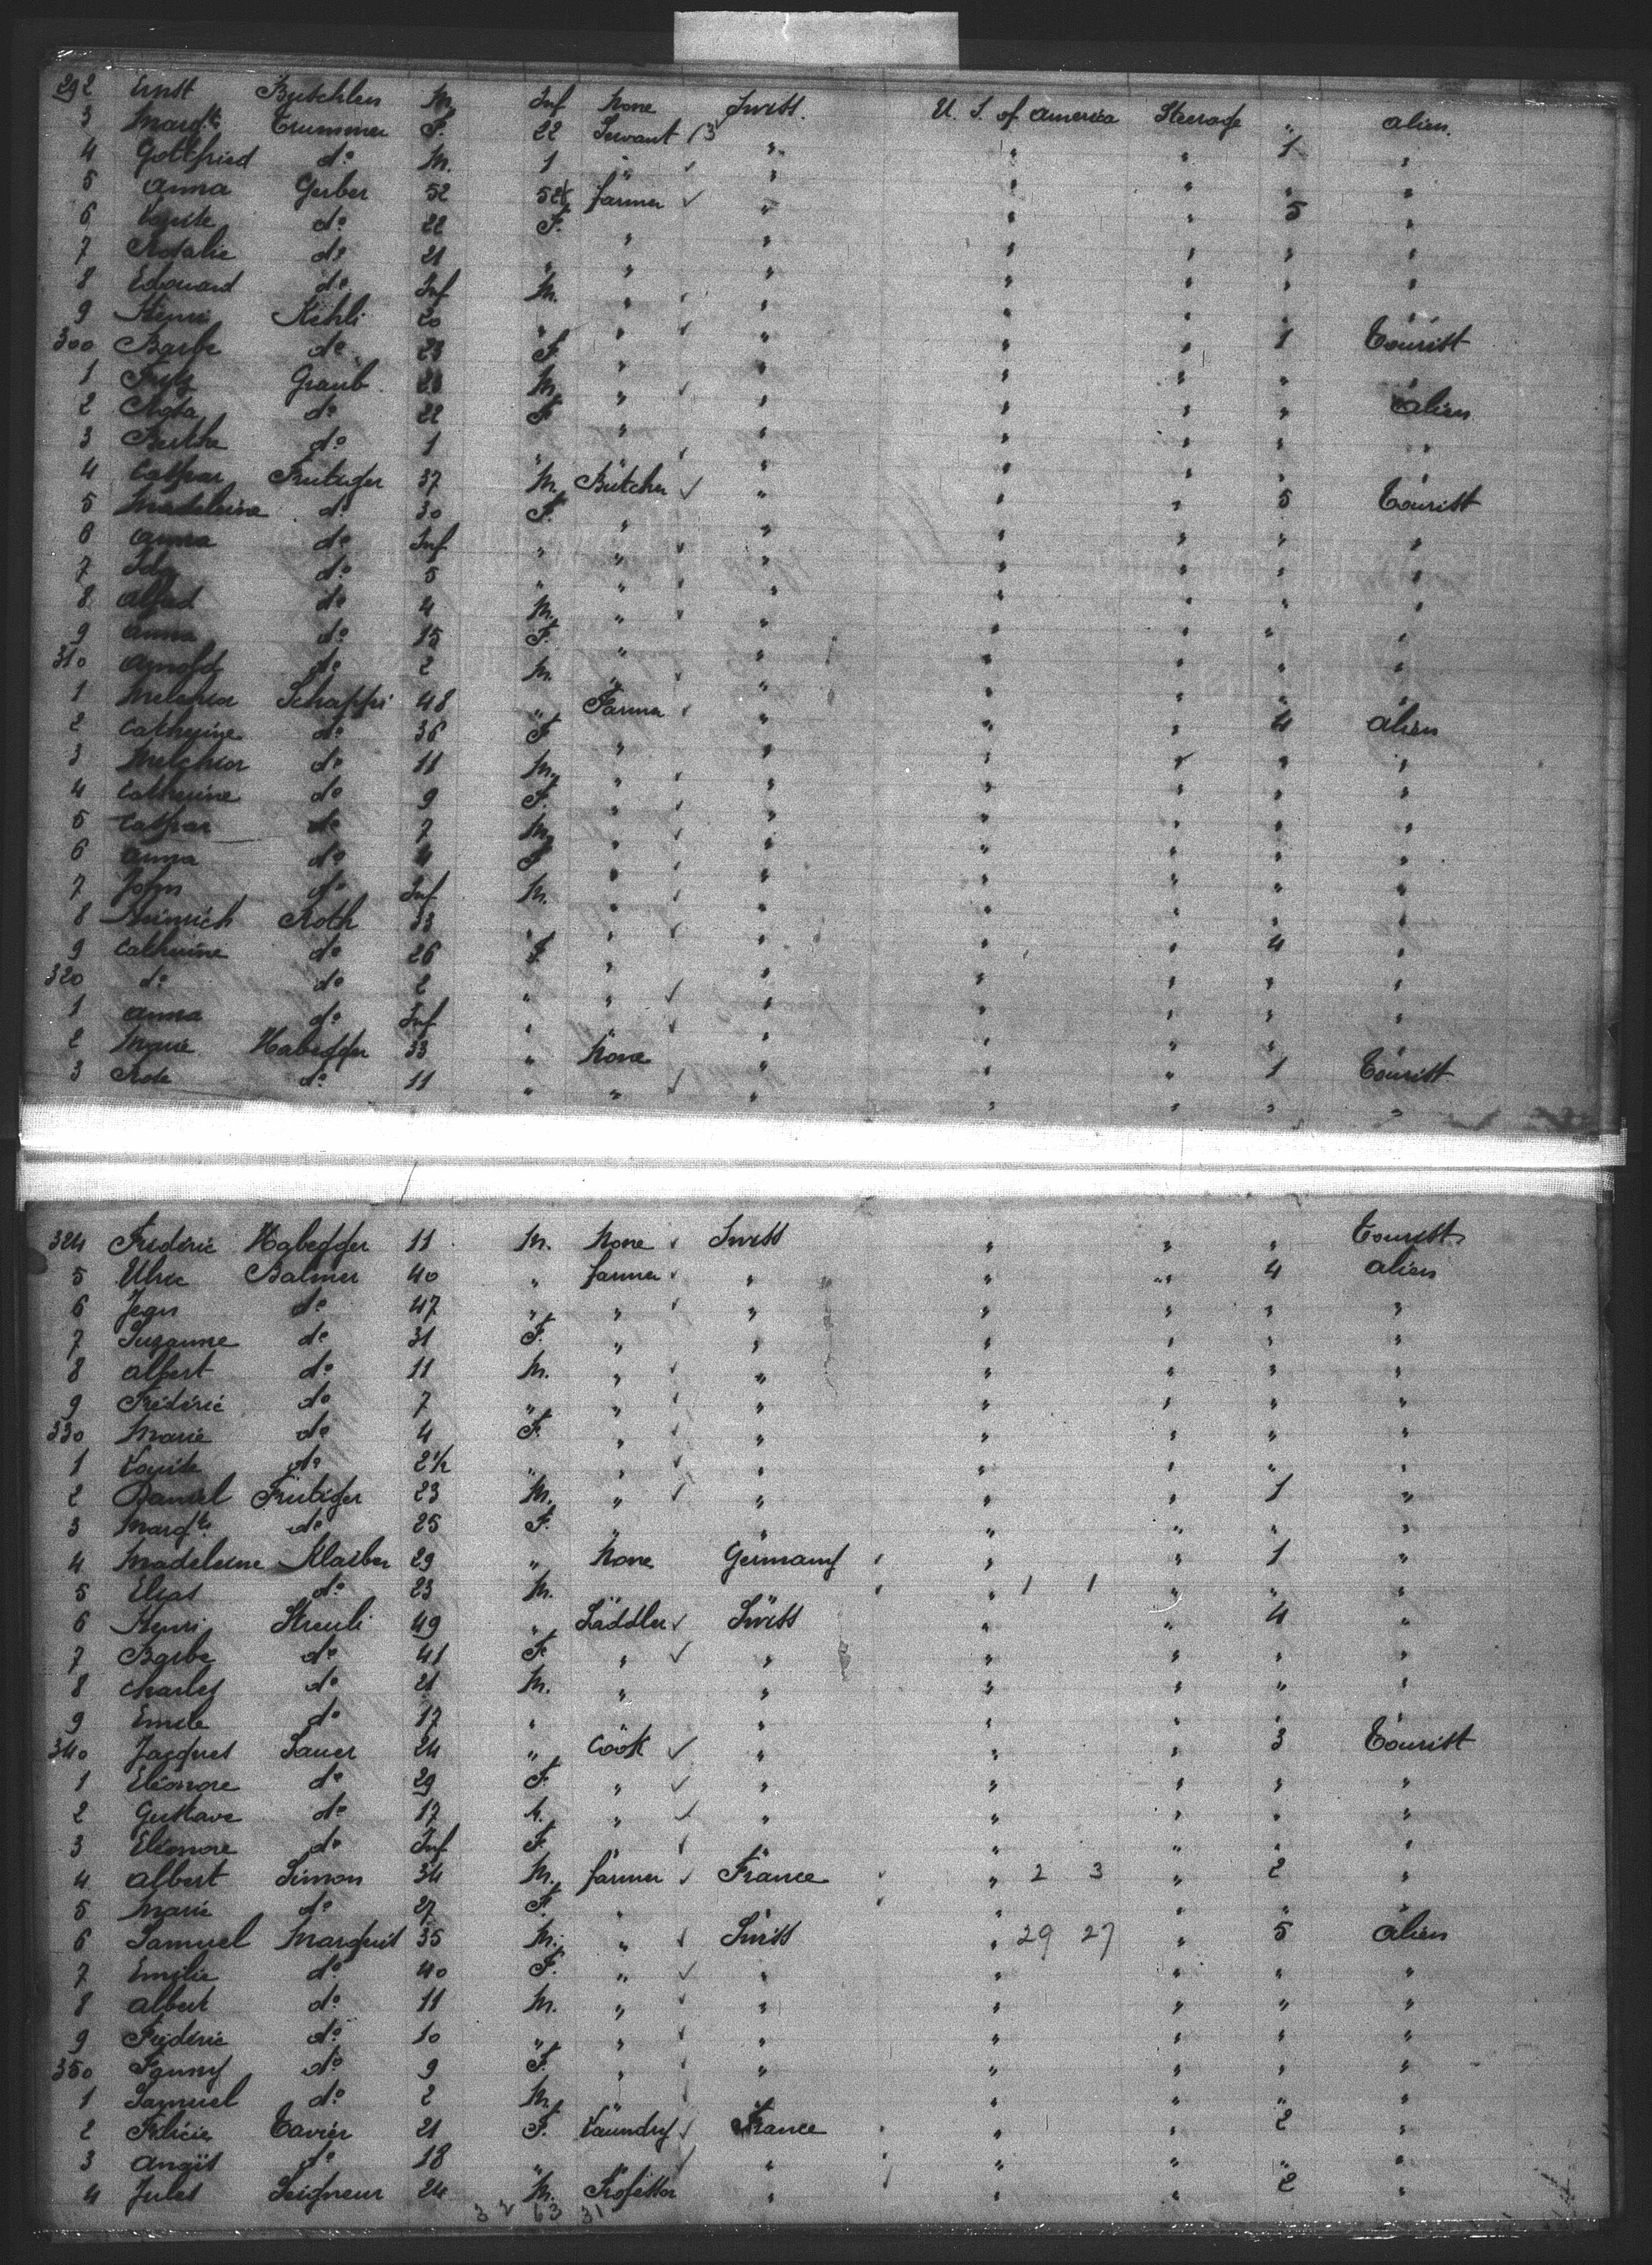 292 Ernst Butschlen M. Inf None Swiss. U. S. of America Steerage " alien.
3 Margte Trummer F. 22 Servant /3 " " " 1 "
4 Gottfried do M. 1 " " " " " "
5 Anna Gerber 52 52 farmer " " " 5 "
6 Louise do 22 F. " " " " " "
7 Rosalie do 21 " " " " " " "
8 Edouard do Inf M. " " " " " "
9 Henri Kehli 20 " " " " " 1 Tourist
300 Barbe do 23 F. " " " " " "
1 Fritz Graub 23 M. " " " " " alien
2 Rosa do 22 F. " " " " " "
3 Bertha do 1 " " " " " " "
4 Caspar Frutiger 37 M. Butcher " " " 5 Tourist
5 Madeleine do 30 F. " " " " " "
6 Anna do Inf " " " " " " "
7 Ida do 5 " " " " " " "
8 Alfred do 4 M. " " " " " "
9 Anna do 15 F. " " " " " "
310 Arnold do 2 M. " " " " " "
1 Melchior Schappi 48 " Farmer " " " 4 alien
2 Catherine do 36 F. " " " " " "
3 Melchior do 11 M. " " " " " "
4 Catherine do 9 F. " " " " " "
5 Caspar do 7 M. " " " " " "
6 Anna do 4 F. " " " " " "
7 John do Inf M. " " " " " "
8 Heinrich Roth 33 " " " " " 4 "
9 Catherine do 26 F. " " " " " "
320 do do 2 " " " " " " "
1 Anna do Inf " " " " " " "
2 Marie Habegger 33 " None " " " 1 Tourist
3 Rose do 11 " " " " " " "
324 Frédéric Habegger 11 M. None Swiss " " " Tourist
5 Ulric Balmer 40 " farmer " " " 4 alien
6 Jean do 47 " " " " " " "
7 Suzanne do 31 F. " " " " " "
8 Albert do 11 M. " " " " " "
9 Frédéric do 7 " " " " " " "
330 Marie do 4 F. " " " " " "
1 Louise do 2 1/2 " " " " " " "
2 Daniel Frutiger 23 M. " " " " 1 "
3 Margte do 25 F. " " " " " "
4 Madeleine Klaiber 29 " None Germany " " 1 "
5 Elias do 23 M. " 1 1 " " "
6 Henri Streuli 49 " Saddler Swiss " " 4 "
7 Barbe do 41 F. " " " " " "
8 Charles do 21 M. " " " " " "
9 Emile do 17 " " " " " "
340 Jacques Sauer 24 " Cook " " " 3 Tourist
1 Eléonore do 29 F. " " " " " "
2 Gustave do 17 M. " " " " " "
3 Eléonore do Inf F. " " " " " "
4 Albert Simon 34 M. farmer France " 2 3 " 2 "
5 Marie do 27 F. " " " " " "
6 Samuel Marquis 35 M. " Swiss " 29 27 " 5 alien
7 Emilie do 40 F. " " " " " "
8 Albert do 11 M. " " " " " "
9 Frédéric do 10 " " " " " " "
350 Fanny do 9 F. " " " " " "
1 Samuel do 2 M. " " " " " "
2 Félicie Tavier 21 F. Laundry France " " 2 "
3 do 18 " " " " " " "
4 Jules Seigneur 24 M. Professor " " " 2 "
3 2 63 31